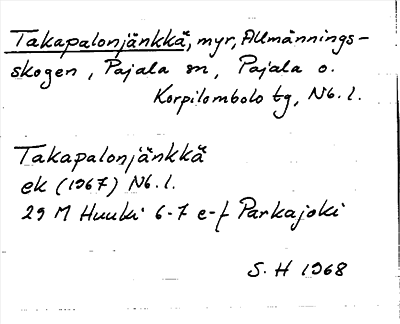 Takapalonjänkkä, myr, Allmännings-
skogen, Pajala sn, Pajala o.
Korpilombolo tg, Nb. l.
Takapalonjänkkä
ek (1967) Nb. l.
29 M Huuki 6-7 e-f Parkajoki
S. H 1968